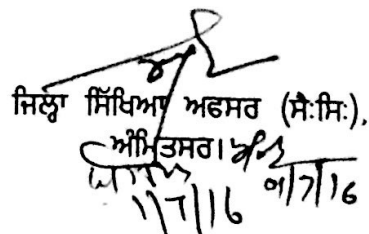 ਜਿਲ੍ਹਾ ਸਿੱਖਿਆ ਅਫਸਰ (ਸੈ:ਸਿ:),
ਅੰਮ੍ਰਿਤਸਰ।
1/7/16
01/7/16